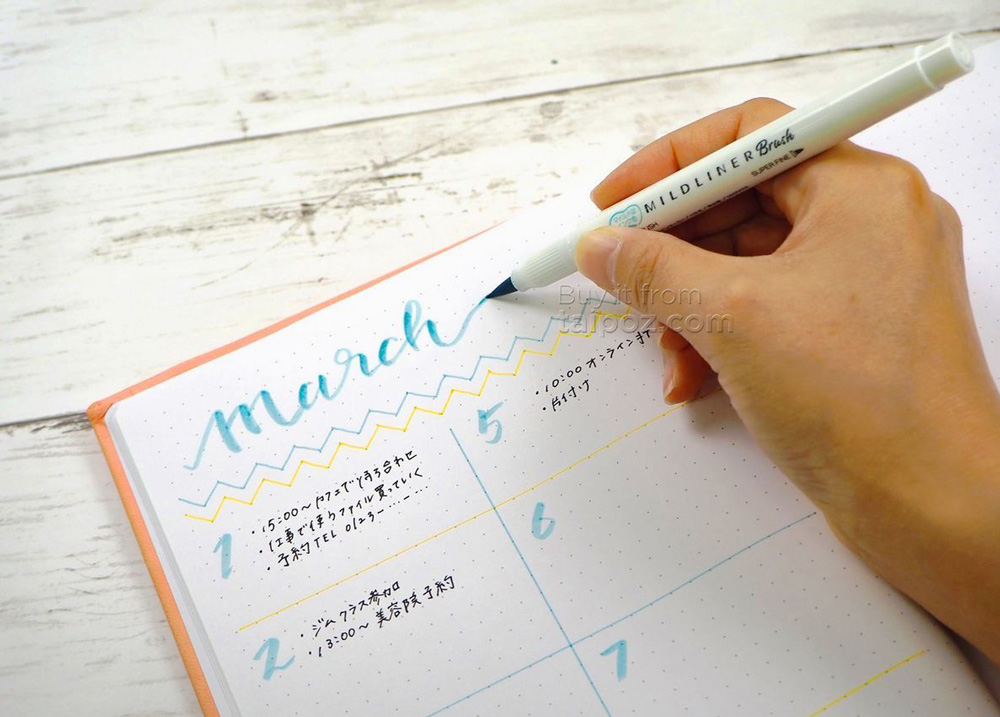 March
1
・15:00〜カフェで待ち合わせ
・仕事で使うファイル買っていく
・予約TEL 0123-……-…
2
・ジムクラス参加
・13:00〜美容院予約
5
・10:00 オンライン
・片付け
6
7
MILDLINER Brush
SUPER FINE
Buy it from
taipoz.com